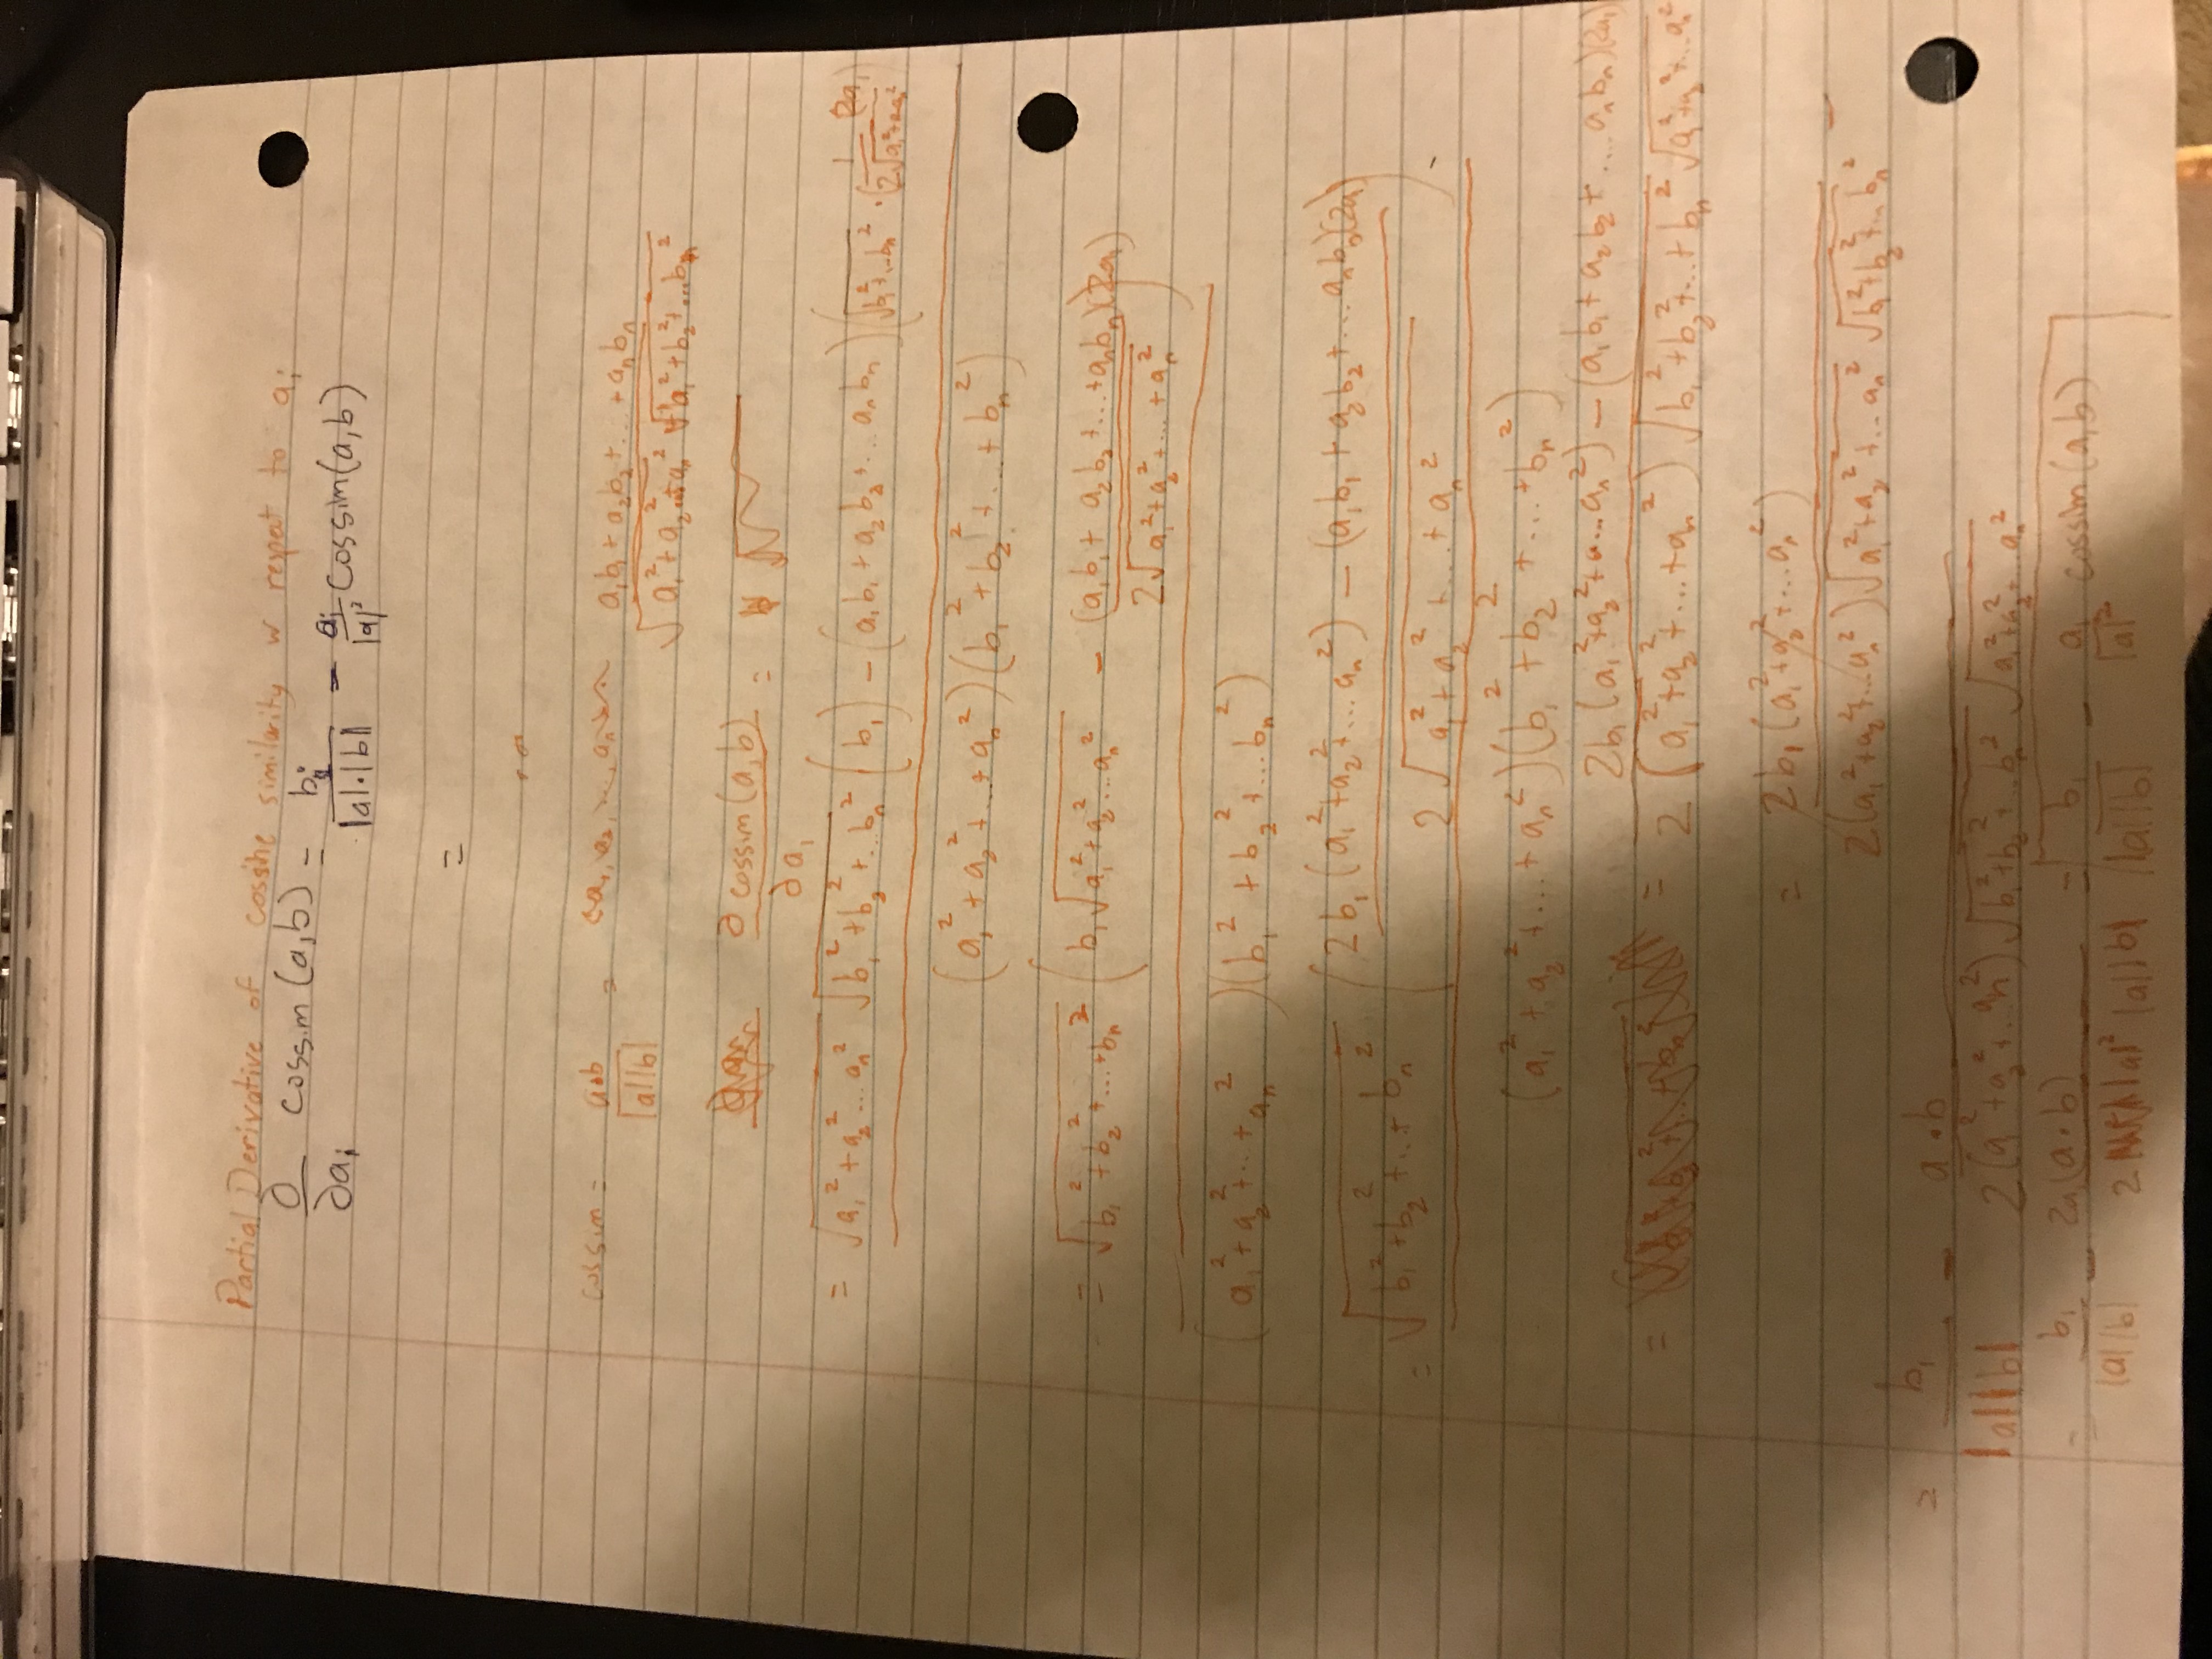 Partial Derivative of cossine similarity w respet to aᵢ
∂/∂aᵢ cossim(a,b) = bᵢ/(|a|·|b|) - aᵢ/|a|² cossim(a,b)
=
cossim = a•b/(|a||b|) = <a₁, a₂, ..., aₙ> (a₁b₁ + a₂b₂ + ... + aₙbₙ)/(√(a₁² + a₂² ... + aₙ²) √(b₁² + b₂² + ... bₙ²))
∂ cossim(a,b)/∂a₁ =
= (√(a₁² + a₂² ... aₙ²) √(b₁² + b₂² + ... bₙ²) (b₁) - (a₁b₁ + a₂b₂ + ... aₙbₙ)(√(b₁² + ... bₙ²) · (1/(2√(a₁² + ... aₙ²)) (2a₁)
(a₁² + a₂² + ... + aₙ²)(b₁² + b₂² + ... + bₙ²)
= √(b₁² + b₂² + ... + bₙ²) (b₁√(a₁² + a₂² ... aₙ²) - (a₁b₁ + a₂b₂ + ... + aₙbₙ)(2a₁)/(2√(a₁² + a₂² + ... + aₙ²)))
(a₁² + a₂² + ... + aₙ²)(b₁² + b₂² + ... bₙ²)
= √(b₁² + b₂² + ... + bₙ²) ((2b₁(a₁² + a₂² + ... aₙ²) - (a₁b₁ + a₂b₂ + ... aₙbₙ)(2a₁))/(2√(a₁² + a₂² + ... + aₙ²)))
(a₁² + a₂² + ... + aₙ²)(b₁² + b₂² + ... + bₙ²)
= = (2b₁(a₁² + a₂² + ... aₙ²) - (a₁b₁ + a₂b₂ + ... aₙbₙ)(2a₁))/(2(a₁² + a₂² + ... + aₙ²) √(b₁² + b₂² + ... + bₙ²) √(a₁² + a₂² + ... aₙ²))
= 2b₁(a₁² + a₂² + ... aₙ²)/(2(a₁² + a₂² + ... aₙ²)√(a₁² + a₂² + ... aₙ²) √(b₁² + b₂² + ... bₙ²)) -
= b₁/(|a||b|) - a•b/(2(a₁² + a₂² + ... aₙ²)√(b₁² + b₂² + ... bₙ²) √(a₁² + a₂² + ... aₙ²))
= b₁/(|a||b|) - 2a₁(a•b)/(2 |a|² |a||b|) = b₁/(|a||b|) - a₁/|a|² cossim(a,b)